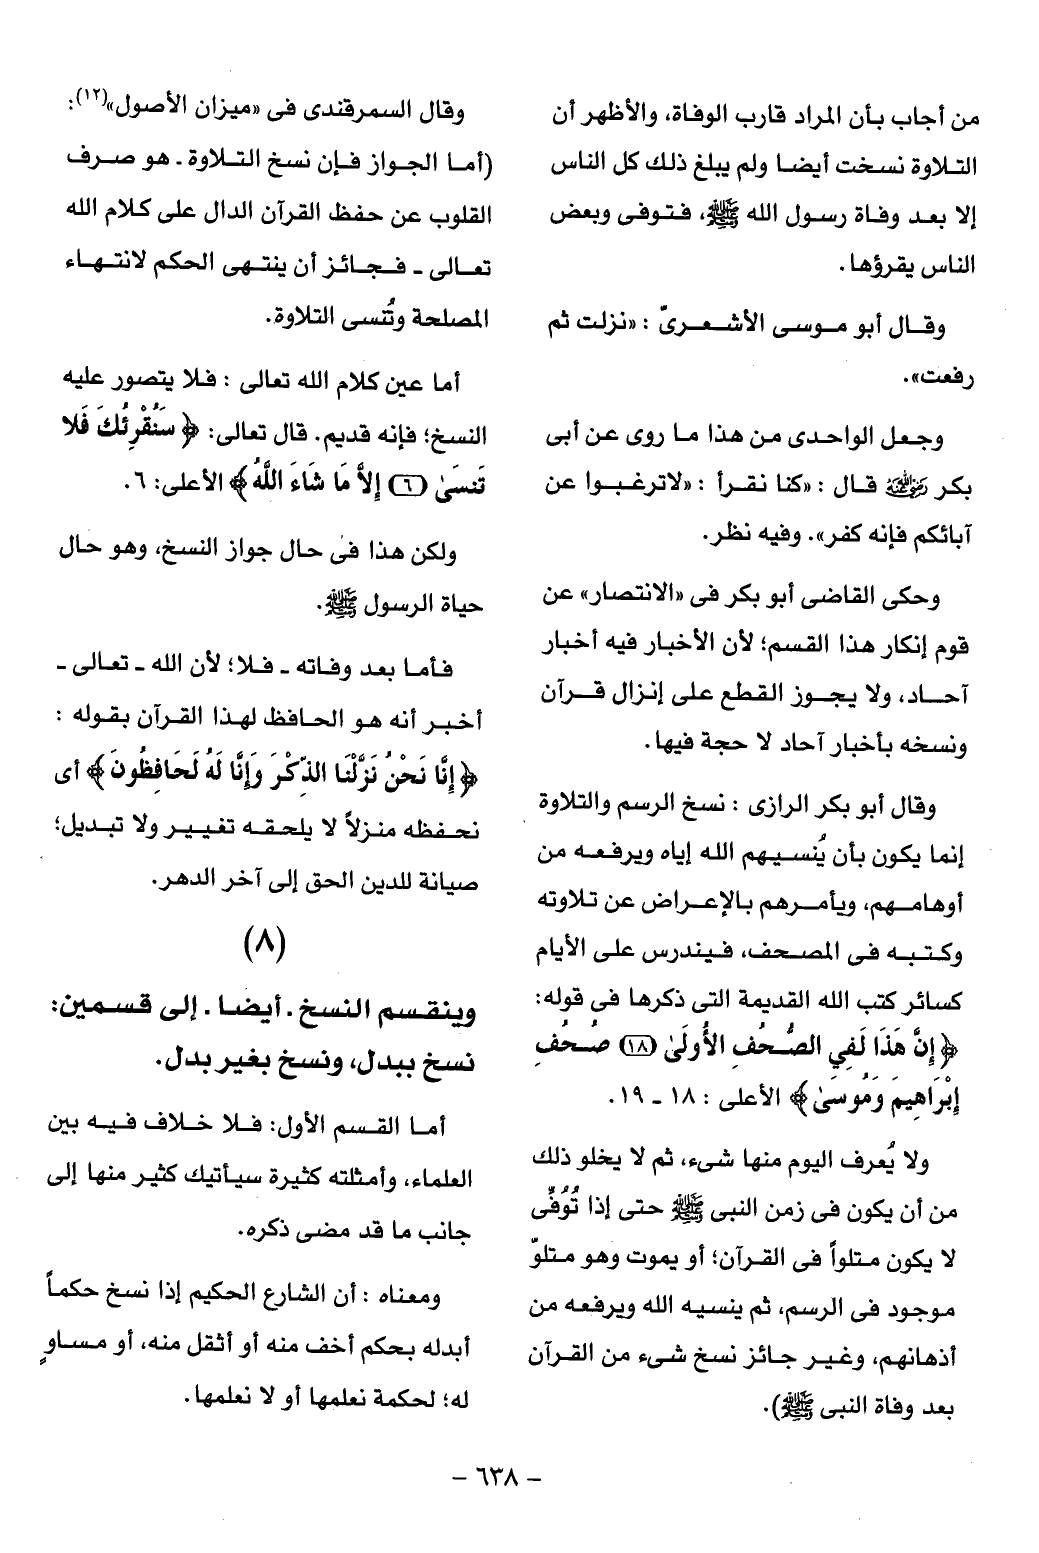 من أجاب بأن المراد قارب الوفاة، والأظهر أن
التلاوة نسخت أيضا ولم يبلغ ذلك كل الناس
إلا بعد وفاة رسول الله ﷺ، فتوفى وبعض
الناس يقرؤها.
وقال أبو موسى الأشعرىّ : «نزلت ثم
رفعت».
وجعل الواحدى من هذا ما روى عن أبى
بكر رضي الله عنه قال : «كنا نقرأ : «لاترغبوا عن
آبائكم فإنه كفر». وفيه نظر.
وحكى القاضى أبو بكر فى «الانتصار» عن
قوم إنكار هذا القسم؛ لأن الأخبار فيه أخبار
آحاد، ولا يجوز القطع على إنزال قرآن
ونسخه بأخبار آحاد لا حجة فيها.
وقال أبو بكر الرازى : نسخ الرسم والتلاوة
إنما يكون بأن يُنسيهم الله إياه ويرفعه من
أوهامهم، ويأمرهم بالإعراض عن تلاوته
وكتبه فى المصحف، فيندرس على الأيام
كسائر كتب الله القديمة التى ذكرها فى قوله:
﴿إِنَّ هَذَا لَفِي الصُّحُفِ الأُولَىٰ (١٨) صُحُفِ
إِبْرَاهِيمَ وَمُوسَىٰ﴾ الأعلى : ١٨ ـ ١٩.
ولا يُعرف اليوم منها شىء، ثم لا يخلو ذلك
من أن يكون فى زمن النبى ﷺ حتى إذا تُوُفِّى
لا يكون متلواً فى القرآن؛ أو يموت وهو متلوّ
موجود فى الرسم، ثم ينسيه الله ويرفعه من
أذهانهم، وغير جائز نسخ شىء من القرآن
بعد وفاة النبى ﷺ).
وقال السمرقندى فى «ميزان الأصول»(١٢):
(أما الجواز فإن نسخ التلاوة ـ هو صرف
القلوب عن حفظ القرآن الدال على كلام الله
تعالى ـ فجائز أن ينتهى الحكم لانتهاء
المصلحة وتُنسى التلاوة.
أما عين كلام الله تعالى : فلا يتصور عليه
النسخ؛ فإنه قديم. قال تعالى: ﴿سَنُقْرِئُكَ فَلا
تَنسَىٰ (٦) إِلاَّ مَا شَاءَ اللَّهُ﴾ الأعلى: ٦.
ولكن هذا فى حال جواز النسخ، وهو حال
حياة الرسول ﷺ.
فأما بعد وفاته ـ فلا؛ لأن الله ـ تعالى ـ
أخبر أنه هو الحافظ لهذا القرآن بقوله :
﴿إِنَّا نَحْنُ نَزَّلْنَا الذِّكْرَ وَإِنَّا لَهُ لَحَافِظُونَ﴾ أى
نحفظه منزلاً لا يلحقه تغيير ولا تبديل؛
صيانة للدين الحق إلى آخر الدهر.
(٨)
وينقسم النسخ . أيضا . إلى قسمين:
نسخ ببدل، ونسخ بغير بدل.
أما القسم الأول: فلا خلاف فيه بين
العلماء، وأمثلته كثيرة سيأتيك كثير منها إلى
جانب ما قد مضى ذكره.
ومعناه : أن الشارع الحكيم إذا نسخ حكماً
أبدله بحكم أخف منه أو أثقل منه، أو مساوٍ
له؛ لحكمة نعلمها أو لا نعلمها.
- ٦٣٨ -